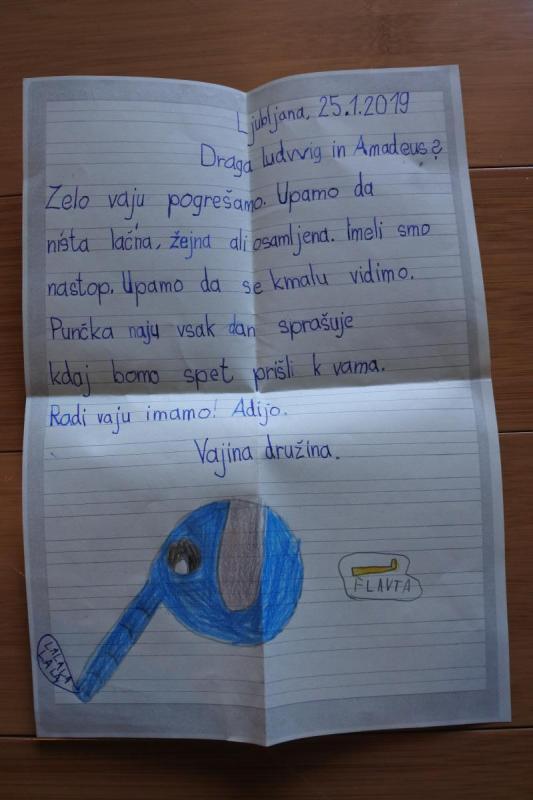 Ljubljana, 25.1.2019
Draga ludwig in Amadeus?
Zelo vaju pogrešamo. Upamo da
ništa lačna, žejna ali osamljena. Imeli smo
nastop. Upamo da se kmalu vidimo.
Punčka naju vsak dan sprašuje
kdaj bomo spet prišli k vama.
Radi vaju imamo! Adijo.
Vajina družina.
FLAVTA
LALALA
LALA